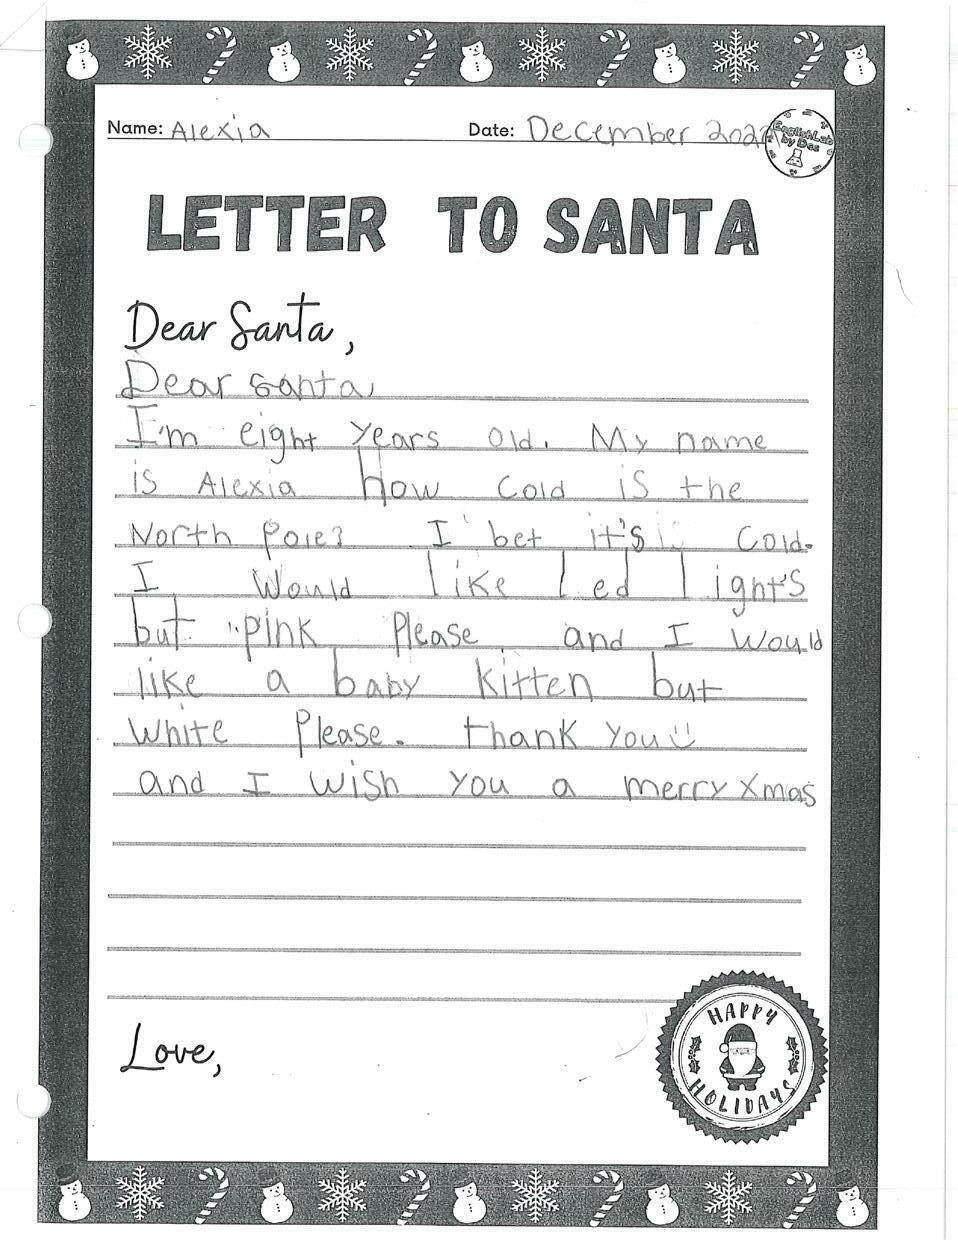 Name: Alexia Date: December
EnglishLab
by Des
LETTER TO SANTA
Dear Santa,
Dear santa,
I'm eight years old. My name
is Alexia How cold is the
North Pole? I bet it's cold.
I would like Led Lights
but pink Please and I would
like a baby kitten but
white Please. thank you
and I wish you a merry Xmas
Love,
HAPPY
HOLIDAYS